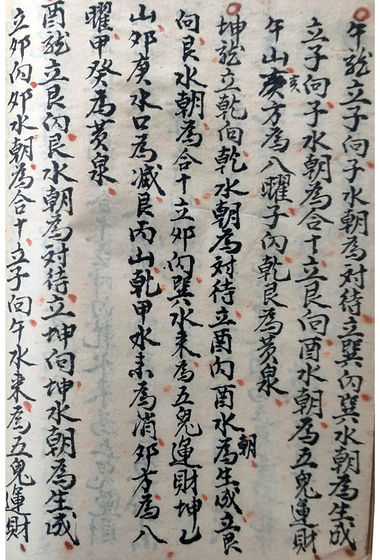 午龍立子向子水朝為对待立巽向巽水朝為生成
立子向子水朝為合十立艮向酉水朝為五鬼運財
午山亥方為八曜子丙乾艮為黃泉
坤龍立乾向乾水朝為对待立酉向酉水朝為生成立艮
向艮水朝為合十立卯向巽水来為五鬼運財坤乙
山卯庚水口為滅艮丙山乾甲水来為消卯方為八
曜甲癸為黃泉
酉龍立艮向艮水朝為对待立坤向坤水朝為生成
立卯向卯水朝為合十立子向午水来為五鬼運財